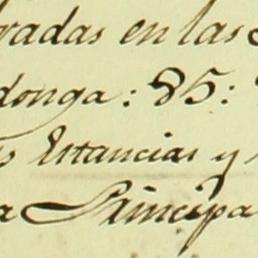 radas en las
donga: 85:
s Estancias y
a Principa